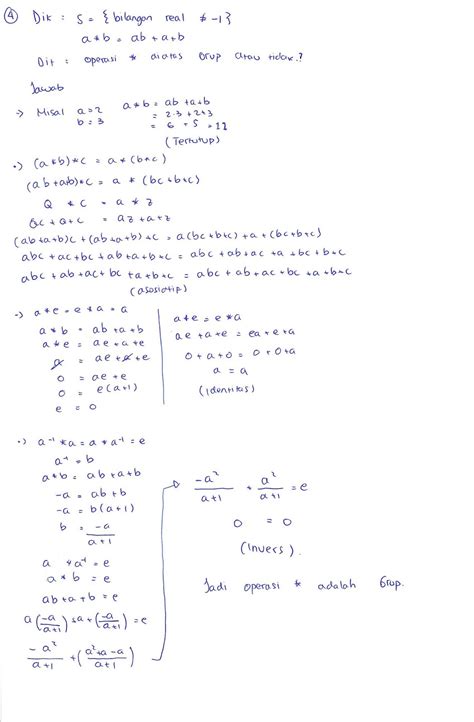 ④ Dik : S = { bilangan real ≠ -1 }
a * b = ab + a + b
Dit : operasi * diatas Grup atau tidak ?
Jawab
-> Misal a = 2
b = 3
a * b = ab + a + b
= 2·3 + 2 + 3
= 6 + 5 = 11
(Tertutup)
•) (a * b) * c = a * (b * c)
(ab + a + b) * c = a * (bc + b + c)
Q * c = a * z
Qc + Q + c = az + a + z
(ab + a + b)c + (ab + a + b) + c = a(bc + b + c) + a + (bc + b + c)
abc + ac + bc + ab + a + b + c = abc + ab + ac + a + bc + b + c
abc + ab + ac + bc + a + b + c = abc + ab + ac + bc + a + b + c
(asosiatip)
-) a * e = e * a = a
a * b = ab + a + b
a * e = ae + a + e
a = ae + a + e
0 = ae + e
0 = e(a+1)
e = 0
a * e = e * a
ae + a + e = ea + e + a
0 + a + 0 = 0 + 0 + a
a = a
(identitas)
•) a⁻¹ * a = a * a⁻¹ = e
a⁻¹ = b
a * b = ab + a + b
-a = ab + b
-a = b(a+1)
b = -a / a+1
a * a⁻¹ = e
a * b = e
ab + a + b = e
a(-a / a+1) + a + (-a / a+1) = e
-a² / a+1 + (a² + a - a / a+1)
-a² / a+1 + a² / a+1 = e
0 = 0
(Invers).
Jadi operasi * adalah Grup.